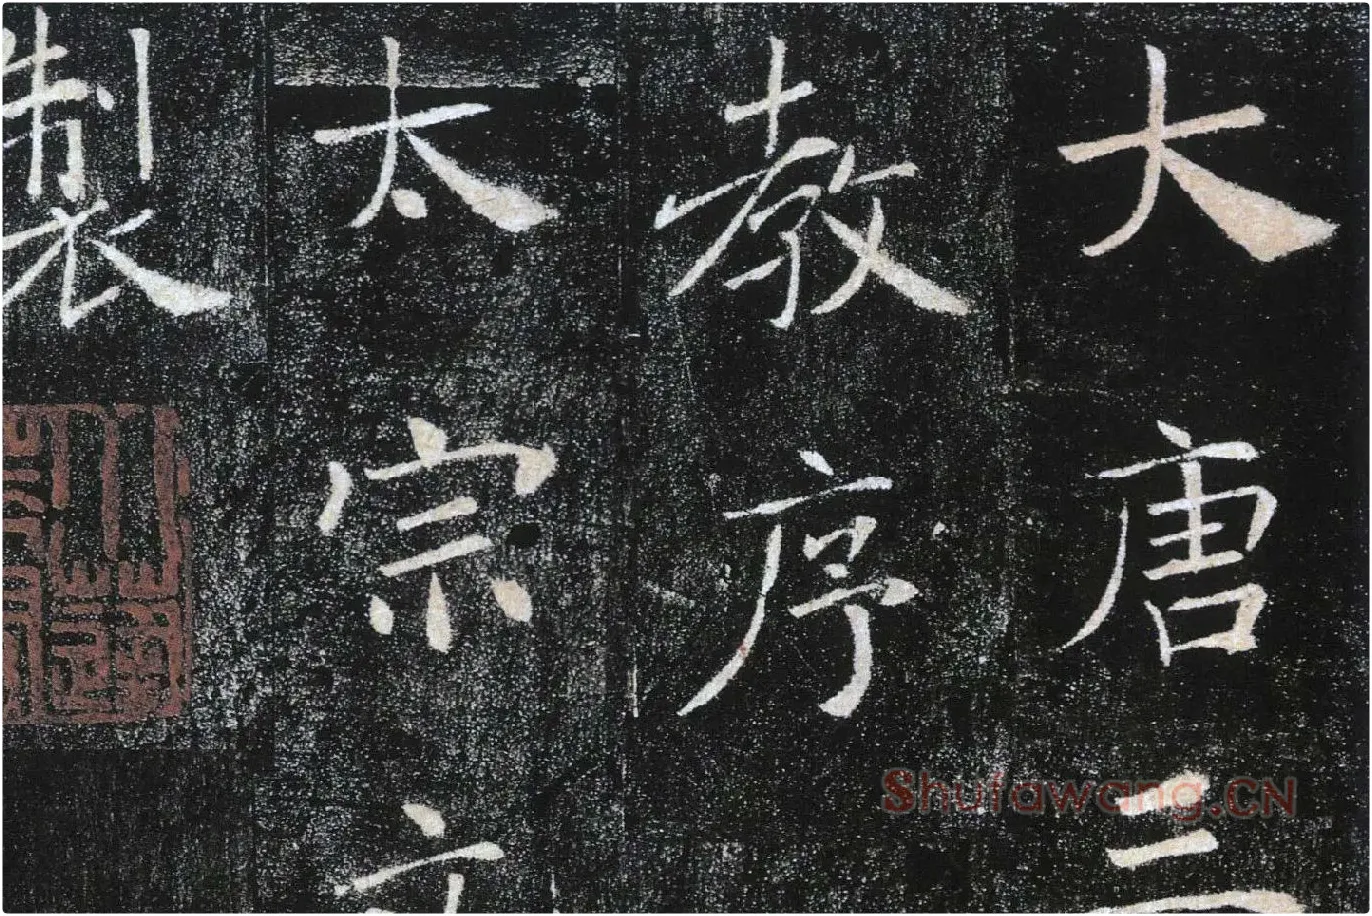 大唐三
教序
太宗文
製
Shufawang.CN